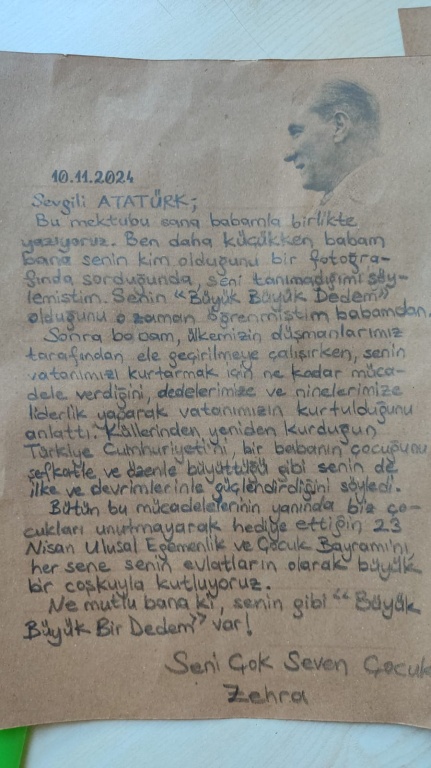 10.11.2024
Sevgili ATATÜRK;
Bu mektubu sana babamla birlikte
yazıyoruz. Ben daha küçükken babam
bana senin kim olduğunu bir fotoğra-
fında sorduğunda, seni tanımadığımı söy-
lemiştim. Senin “Büyük Büyük Dedem”
olduğunu o zaman öğrenmiştim babamdan.
Sonra babam, ülkemizin düşmanlarımız
tarafından ele geçirilmeye çalışırken, senin
vatanımızı kurtarmak için ne kadar müca-
dele verdiğini, dedelerimize ve ninelerimize
liderlik yaparak vatanımızın kurtulduğunu
anlattı. Küllerinden yeniden kurduğun
Türkiye Cumhuriyeti'ni, bir babanın çocuğunu
şefkatle ve özenle büyüttüğü gibi senin de
ilke ve devrimlerinle güçlendirdiğini söyledi.
Bütün bu mücadelelerinin yanında biz ço-
cukları unutmayarak hediye ettiğin 23
Nisan Ulusal Egemenlik ve Çocuk Bayramı'nı,
her sene senin evlatların olarak büyük
bir coşkuyla kutluyoruz.
Ne mutlu bana ki, senin gibi “Büyük
Büyük Bir Dedem” var!
Seni Çok Seven Çocuk
Zehra